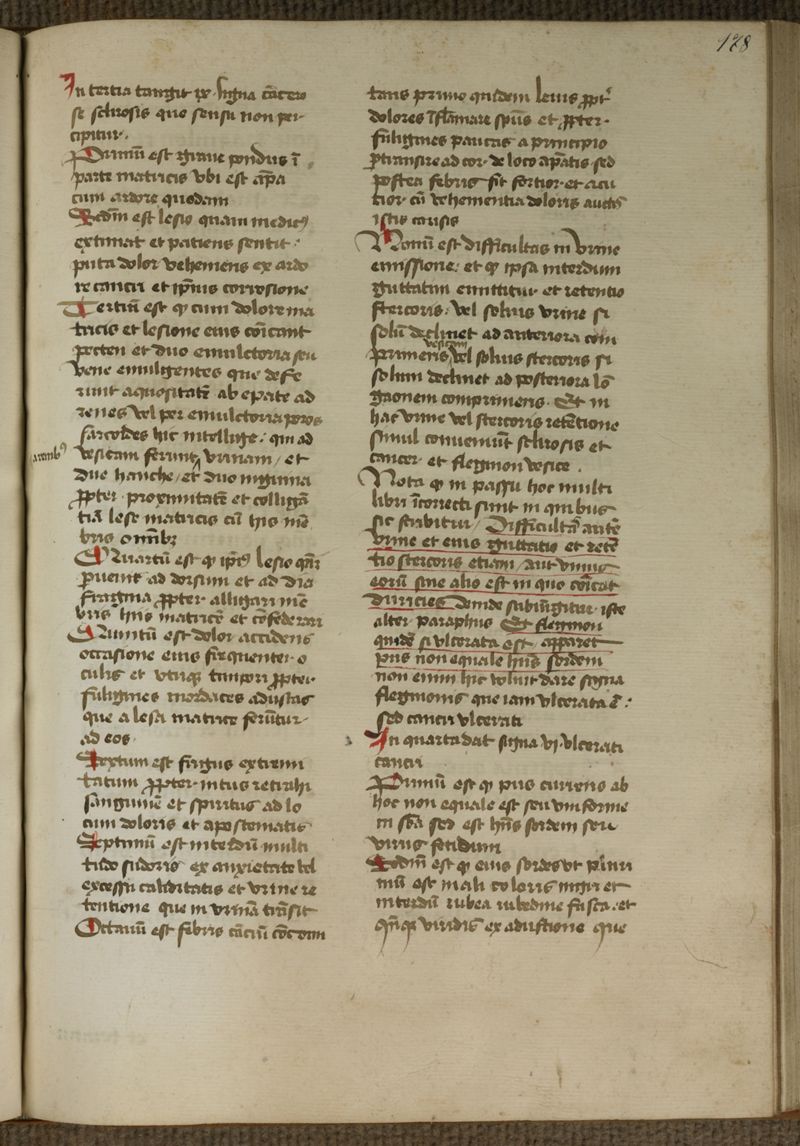 178
In tertia tangit ix signa cācro
se sclirosis que sensu non per-
cipitur.
Primū est graue pondus ī
parte matricis vbi est apa
cum ardore quodam
Scdm est lesio quam medicus
extimat et patiens sentit:
puta dolor vehemens ex ardo
re cancri et ipsius corrosione
Tertiū est q cum dolore ma
tricis et lesione eius coīcant
pecten et duo emulctoria seu
vene emulgentes que defe
runt aquositatē ab epate ad
renes vel per emulctoria poros
sarcoides hic intellige: qui ad
vesicam ferunt vrinam / et
due hanche / et duo inguina
ppter proximitatē et colligā
tiā lese matricis cū hijs mē
bris omībus
Quartū est q ipsius lesio qnī
puenit ad dorsum et ad dia
fragma ppter alligari mē
bris hijs matricē et cōfederari
Quintū est dolor accidens
occasione eius frequenter o
culis et vtriq timpori ppter
fuligines mordaces adustas
que a lesa matrice ferūtur
ad eos
Sextum est frigus extremi
tatum ppter intus retrahi
sanguinē et spiritus ad lo
cum doloris et apostematis
Septimū est interdū multi
tudo sudoris ex anxietate vel
excessu caliditatis et vrine re
tentione que in vrinā trāsit
Octauū est febris cācrū cōcomi
tans primo quidem leuis ppt
dolores īflāmare spūs et ppter
fuligines paucas a principio
ptransire ad cor de loco apatis sed
postea febris fit fortior et acu
tior cū vehementia doloris auctis
istis causis
Nonū est difficultas in vrine
emissione: et q ipsa interdum
guttatim emittitur et retentio
stercoris: vel solius vrine si
solū declinet ad anteriora com
primens vesicam vel solius stercoris si
solum declinet ad posteriora lō
gaonem comprimens. Et in
hac vrine vel stercoris retētione
simul conueniūt sclirosis et
cancer et flegmon vesice.
Nota q in passu hoc multi
libri īcorrecti sunt in quibus
sic scribitur / Difficultas autē
vrine et eius guttatio et retē
tio stercoris etiam / aut vnius
eorū sine alio est in quo coīcat
duricies deinde subiūgitur iste
alter paraphus Et flegmon
quidē si vlcerata est apparet
pus non equale hūs sordem
non enim hic voluit dare signa
flegmonis que iam vlcerata ē:
sed cancri vlcerati
In quarta dat signa vj vlcerati
cancri
Primū est q pus currens ab
hoc non equale est seu vniforme
in sba sed est hūs sordem seu
virus fetidum
Scdm est q eius sordes vt pluri
mū est mali coloris nigri et
interdū rubea rubedine fusca et
qnq viridis ex adustione que